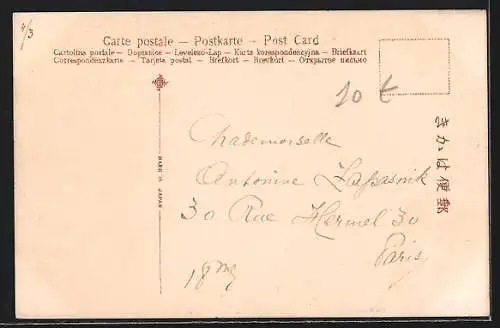 4/3
Carte postale — Postkarte — Post Card
Cartolina postale — Dopisnice — Levelező-Lap — Karta korespondenzyjna — Briefkaart
Correspondenzkarte — Tarjeta postal — Brefkort — Brevkort — Открытое письмо
10 t
きかは便郵
MADE IN JAPAN
Mademoiselle
Antonine Zapasnik
30 Rue Hermel 30
Paris
18